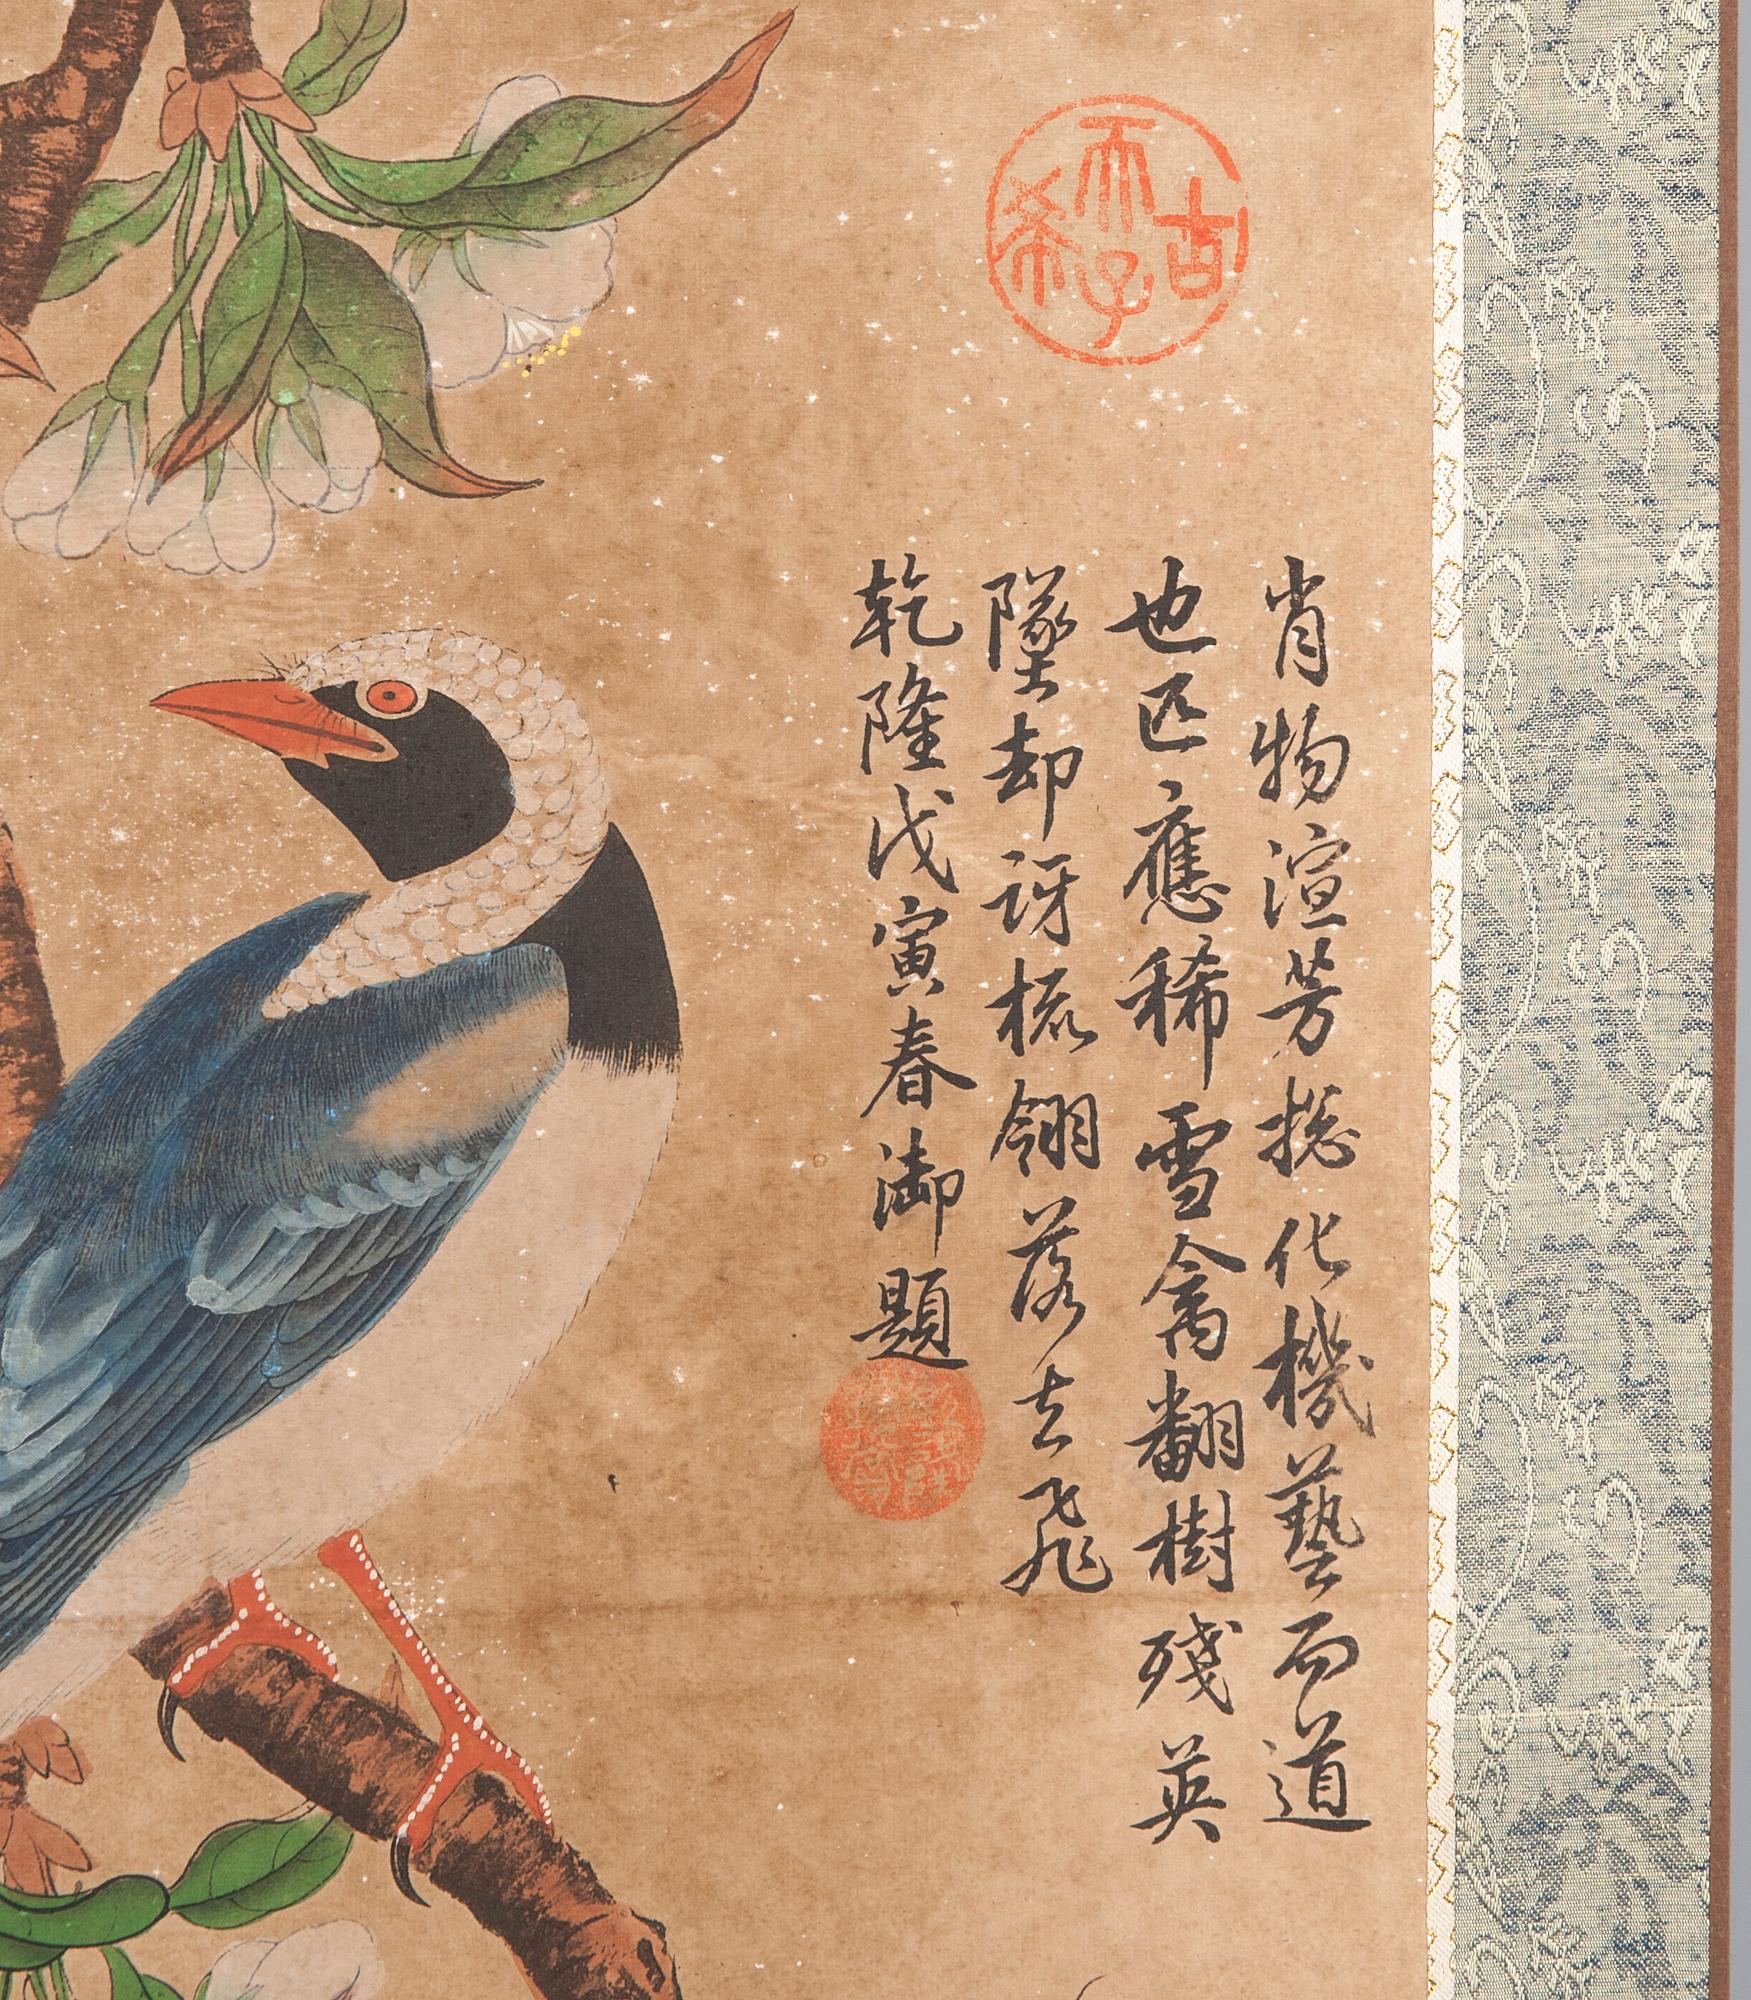 古希天子
肖物渲芳捴化機藝而道
也匹應稀雪禽翻樹殘英
墜却訝梳翎落去飛
乾隆戊寅春御題